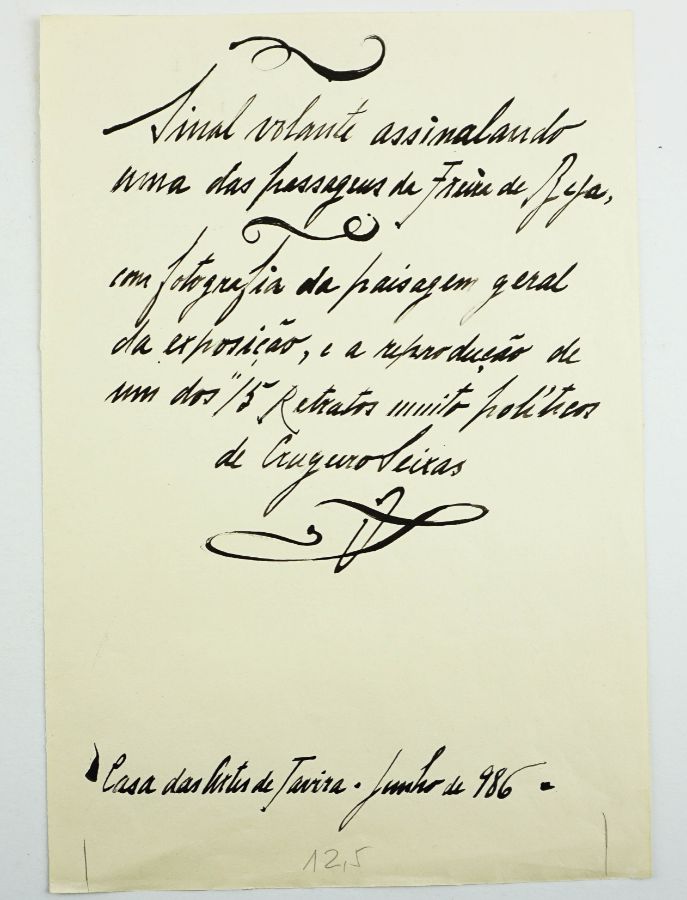 Sinal volante assinalando
uma das passagens da Freira de Beja,
com fotografia da paisagem geral
da exposição, e a reprodução de
um dos "15 Retratos muito políticos
de Cruzeiro Seixas
Casa das Artes de Tavira. Junho de 986 -
12,5